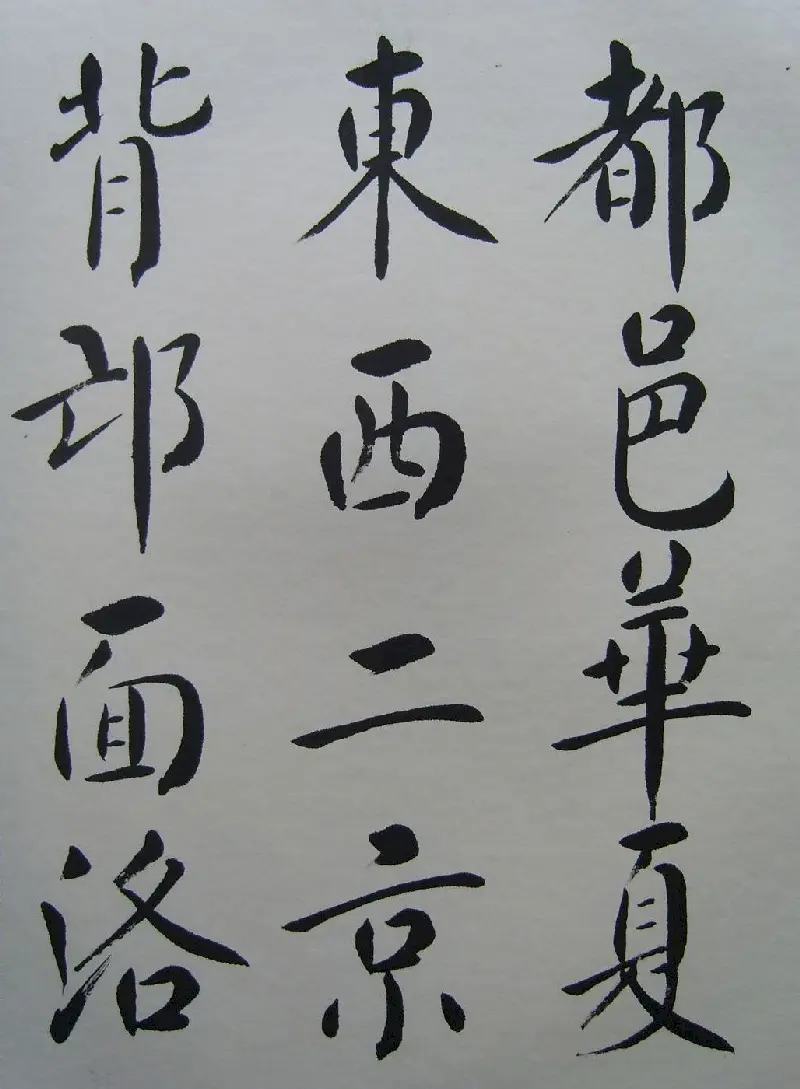 都邑華夏
東西二京
背邙面洛